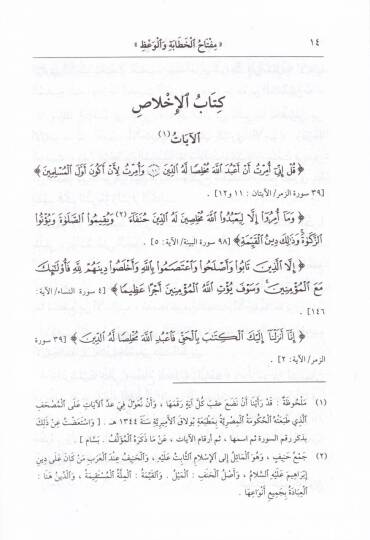 ١٤ « مِفْتَاحُ الْخَطَابَةِ وَالْوَعْظِ »
كِتَابُ الْإِخْلَاصِ
الْآيَاتُ (١)
﴿ قُلْ إِنِّي أُمِرْتُ أَنْ أَعْبُدَ اللَّهَ مُخْلِصًا لَهُ الدِّينَ ۝ وَأُمِرْتُ لِأَنْ أَكُونَ أَوَّلَ الْمُسْلِمِينَ ﴾
[٣٩ سورة الزمر/ الآيتان : ١١ و١٢] .
﴿ وَمَا أُمِرُوا إِلَّا لِيَعْبُدُوا اللَّهَ مُخْلِصِينَ لَهُ الدِّينَ حُنَفَاءَ (٢) وَيُقِيمُوا الصَّلَوٰةَ وَيُؤْتُوا
الزَّكَوٰةَ وَذَٰلِكَ دِينُ الْقَيِّمَةِ ﴾ [٩٨ سورة البينة/ الآية: ٥] .
﴿ إِلَّا الَّذِينَ تَابُوا وَأَصْلَحُوا وَاعْتَصَمُوا بِاللَّهِ وَأَخْلَصُوا دِينَهُمْ لِلَّهِ فَأُولَٰئِكَ
مَعَ الْمُؤْمِنِينَ وَسَوْفَ يُؤْتِ اللَّهُ الْمُؤْمِنِينَ أَجْرًا عَظِيمًا ﴾ [٤ سورة النساء/ الآية :
١٤٦] .
﴿ إِنَّا أَنْزَلْنَا إِلَيْكَ الْكِتَٰبَ بِالْحَقِّ فَاعْبُدِ اللَّهَ مُخْلِصًا لَهُ الدِّينَ ﴾ [٣٩ سورة
الزمر/ الآية: ٢] .
(١) مَلْحُوظَةٌ : قَدْ رَأَيْنَا أَنْ نَضَعَ عَقِبَ كُلِّ آيَةٍ رَقْمَهَا ، وَأَنْ نُعَوِّلَ فِي عَدِّ الْآيَاتِ عَلَى الْمُصْحَفِ
الَّذِي طَبَعَتْهُ الْحُكُومَةُ الْمِصْرِيَّةُ بِمَطْبَعَةِ بُولَاقَ الْأَمِيرِيَّةِ سَنَةَ ١٣٤٤ هـ . [ وَاسْتَعَضْتُ عَنْ ذٰلِكَ
بذكر رقم السورة ثم اسمها ، ثم أرقام الآيات ، عَنْ مَا ذَكَرَهُ الْمُؤَلِّفُ . بسّام ] .
(٢) جَمْعُ حَنِيفٍ ، وَهُوَ الْمَائِلُ إِلَى الْإِسْلَامِ الثَّابِتُ عَلَيْهِ ، وَالْحَنِيفُ عِنْدَ الْعَرَبِ مَنْ كَانَ عَلَى دِينِ
إِبْرَاهِيمَ عَلَيْهِ السَّلَامُ ، وَأَصْلُ الْحَنَفِ : الْمَيْلُ . وَالْقَيِّمَةُ : الْمِلَّةُ الْمُسْتَقِيمَةُ ، وَالدِّينُ هُنَا :
الْعِبَادَةُ بِجَمِيعِ أَنْوَاعِهَا .